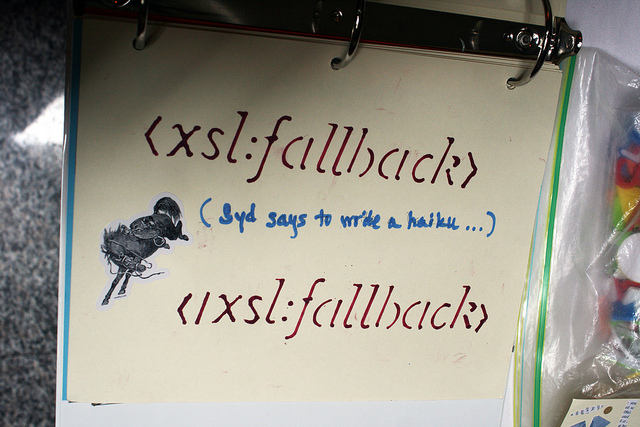 <xsl:fallback>
(Syd says to write a haiku...)
</xsl:fallback>